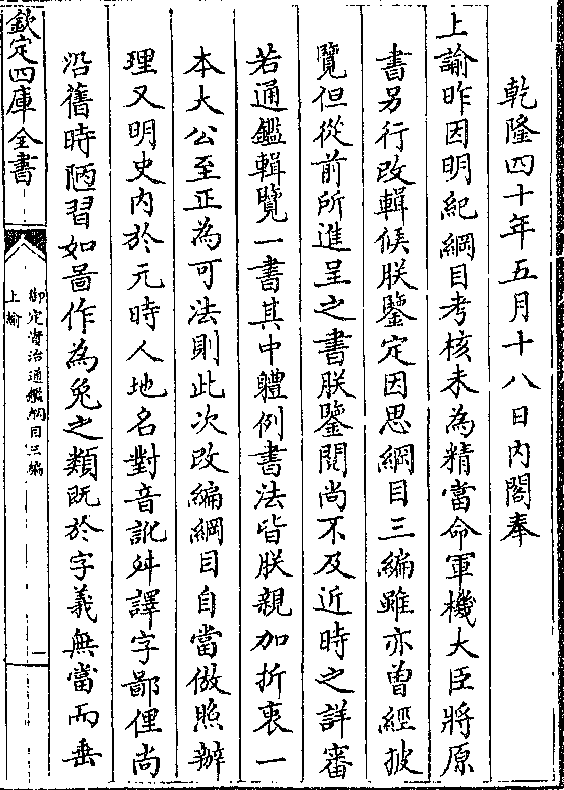 乾隆四十年五月十八日内閣奉
上諭昨因明紀綱目考核未為精當命軍機大臣將原
書另行改輯候朕鑒定因思綱目三編雖亦曾經披
覽但從前所進呈之書朕鑒閱尚不及近時之詳審
若通鑑輯覽一書其中體例書法皆朕親加折衷一
本大公至正為可法則此次改編綱目自當倣照辦
理又明史内於元時人地名對音訛舛譯字鄙俚尚
沿舊時陋習如啚作為兔之類既於字義無當而垂
欽定四庫全書
御定資治通鑑綱目三編
上諭
一